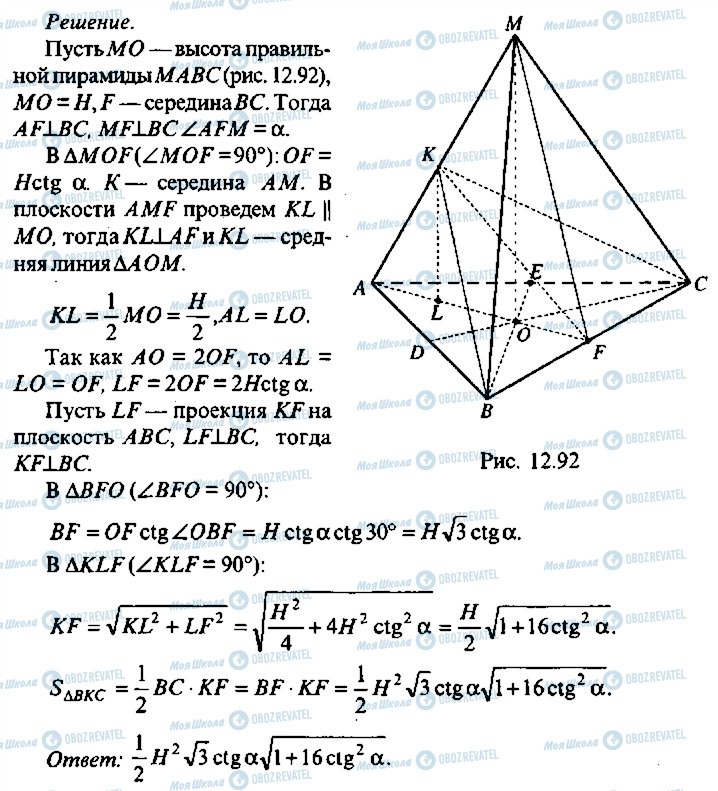 Решение.
Пусть MO — высота правиль-
ной пирамиды MABC (рис. 12.92),
MO = H, F — середина BC. Тогда
AF⊥BC, MF⊥BC ∠AFM = α.
В ΔMOF (∠MOF = 90°): OF =
Hctg α. K — середина AM. В
плоскости AMF проведем KL ||
MO, тогда KL⊥AF и KL — сред-
няя линия ΔAOM.
KL = 1/2 MO = H/2, AL = LO.
Так как AO = 2OF, то AL =
LO = OF, LF = 2OF = 2Hctg α.
Пусть LF — проекция KF на
плоскость ABC, LF⊥BC, тогда
KF⊥BC.
В ΔBFO (∠BFO = 90°):
BF = OF ctg∠OBF = H ctg α ctg 30° = H√3 ctg α.
В ΔKLF (∠KLF = 90°):
KF = √(KL² + LF²) = √(H²/4 + 4H² ctg² α) = H/2 √(1 + 16 ctg² α).
S_ΔBKC = 1/2 BC · KF = BF · KF = 1/2 H² √3 ctg α √(1 + 16 ctg² α).
Ответ: 1/2 H² √3 ctg α √(1 + 16 ctg² α).
M
K
A
E
C
L
O
D
F
B
Рис. 12.92
Моя Школа OBOZREVATEL